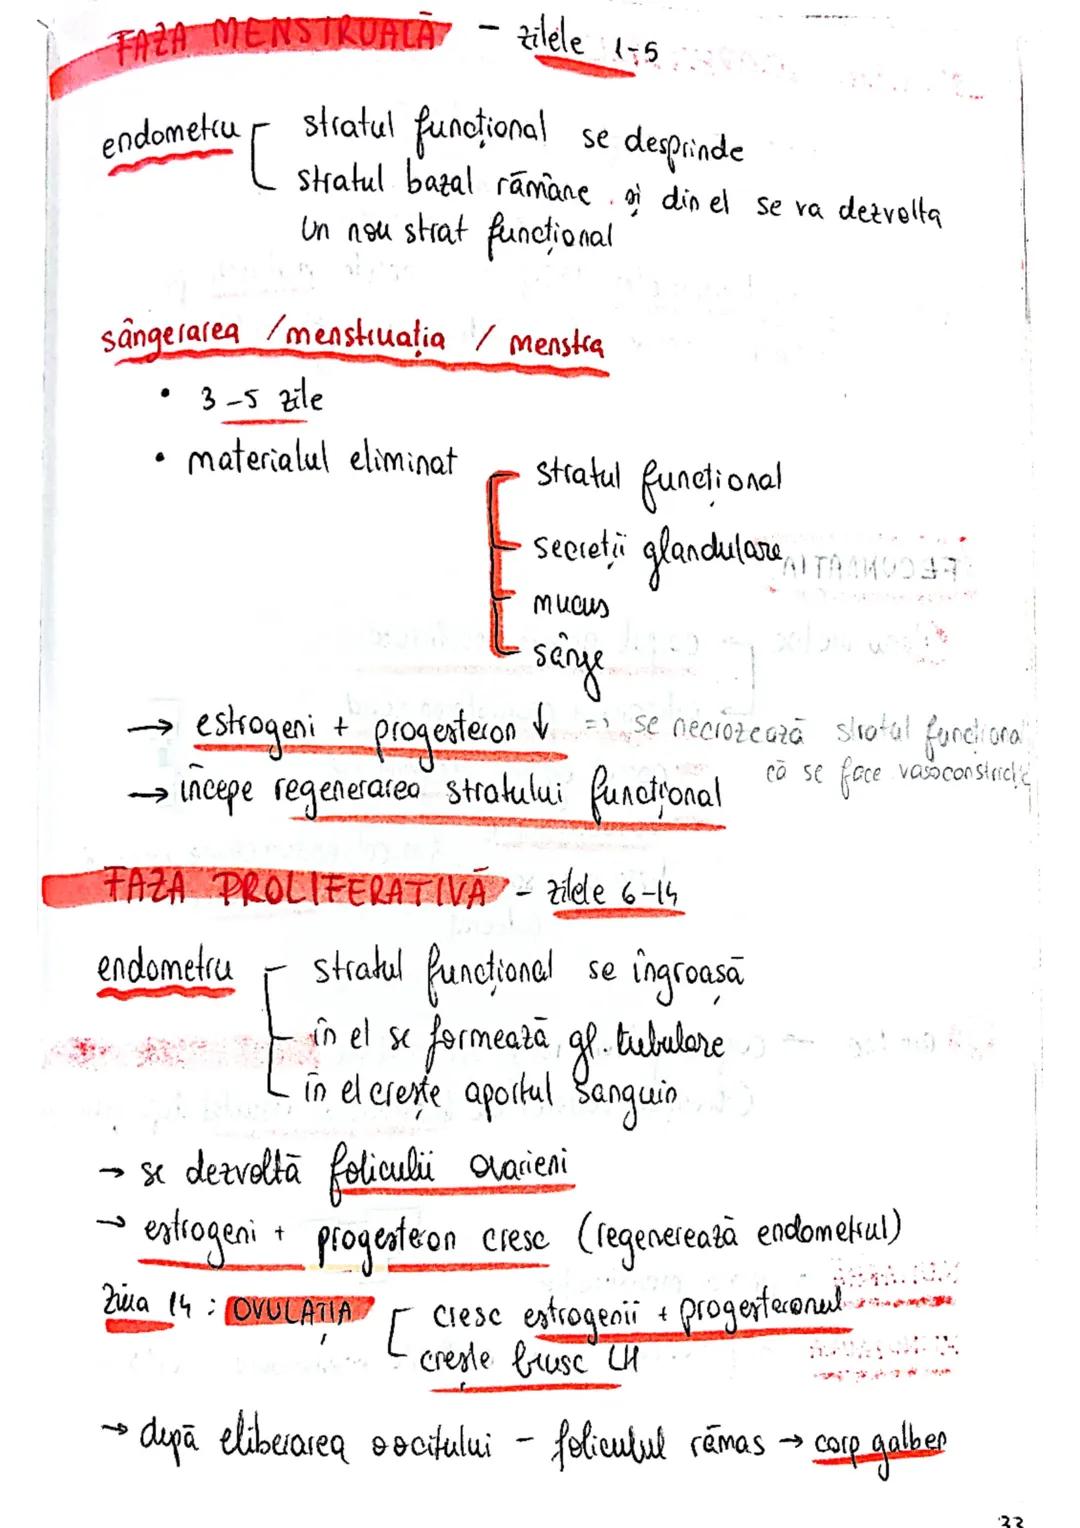 FAZA MENSTRUALĂ - zilele 1-5
endometru stratul funcțional se desprinde
stratul bazal rămâne și din el se va dezvolta
un nou strat funcțional
sângerarea / menstruația / menstra
• 3-5 zile
• materialul eliminat
stratul funcțional
secreții glandulare
mucus
sânge
FECUNDAȚIA
→ estrogeni + progesteron ↓ => se necrozează stratul funcțional
că se face vasoconstricție
→ începe regenerarea stratului funcțional
FAZA PROLIFERATIVĂ - zilele 6-14
endometru stratul funcțional se îngroașă
în el se formează gl. tubulare
în el crește aportul sanguin
→ se dezvoltă foliculii ovarieni
→ estrogeni + progesteron cresc (regenerează endometrul)
Ziua 14 : OVULAȚIA cresc estrogenii + progesteronul
crește brusc LH
→ după eliberarea oocitului - foliculul rămas → corp galben
33